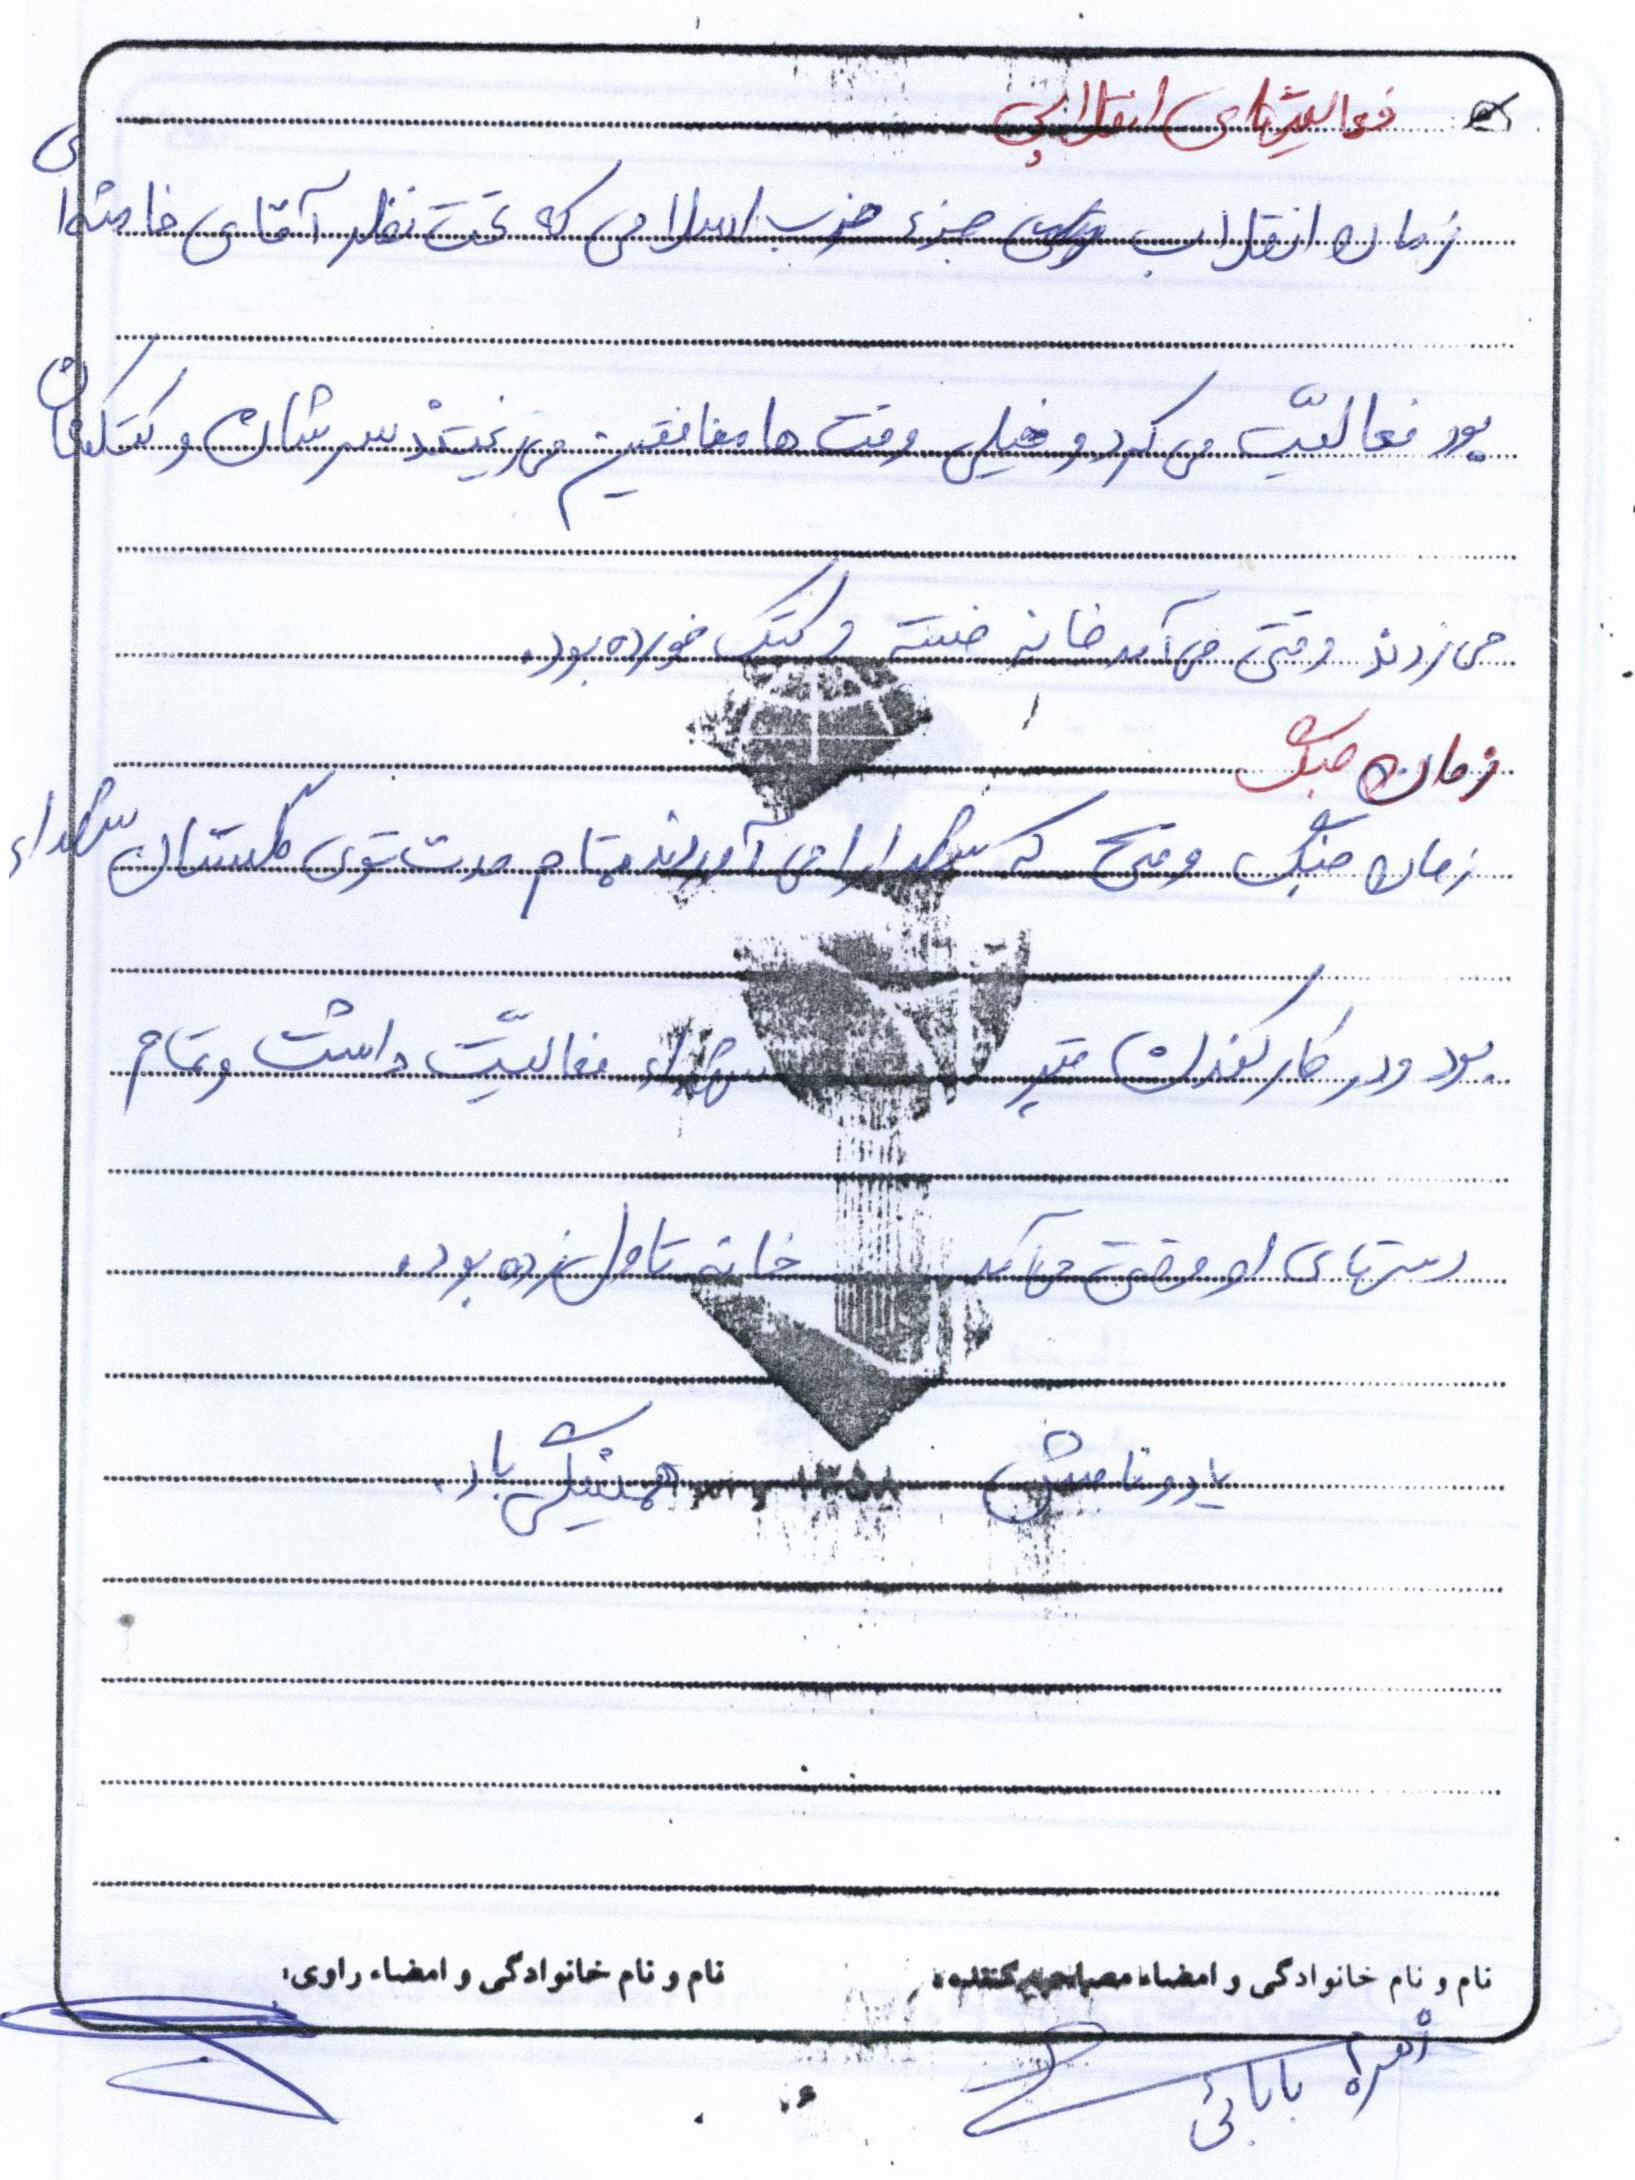 فعالیتهای انقلابی
زمان انقلاب جزء حزب اسلامی که تحت نظر آقای خامنه‌ای
بود فعالیّت می کرد و خیلی وقت ها منافقین می ریختند سرشان و کتکشان
می زدند وقتی می آمد خانه خسته و کتک خورده بود.
زمان جنگ
زمان جنگ وقتی که شهدا را می آوردند تمام مدت توی گلستان شهداء
بود و در کار کندن قبر شهداء فعالیّت داشت و تمام
دستهای او وقتی می آمد خانه تاول زده بود.
یاد و نامش همیشگی باد.
۱۳۵۸
نام و نام خانوادگی و امضاء مصاحبه کننده:
نام و نام خانوادگی و امضاء راوی:
زهره بابائی
۶